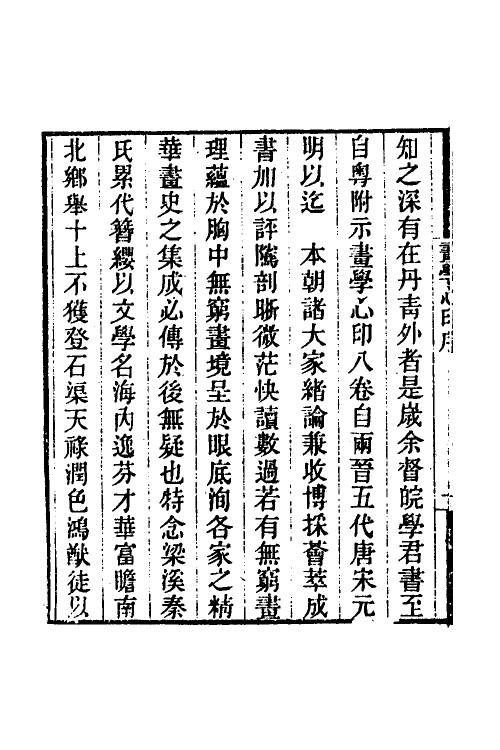 知之深有在丹青外者是歲余督皖學君書至
自粤附示畫學心印八卷自兩晉五代唐宋元
明以迄　本朝諸大家緒論兼收博採薈萃成
書加以評隲剖晰微茫快讀數過若有無窮畫
理蘊於胸中無窮畫境呈於眼底洵各家之精
華畫史之集成必傳於後無疑也特念梁溪秦
氏累代簪纓以文學名海内逸芬才華富贍南
北鄉舉十上不獲登石渠天祿潤色鴻猷徒以
畫學心印序